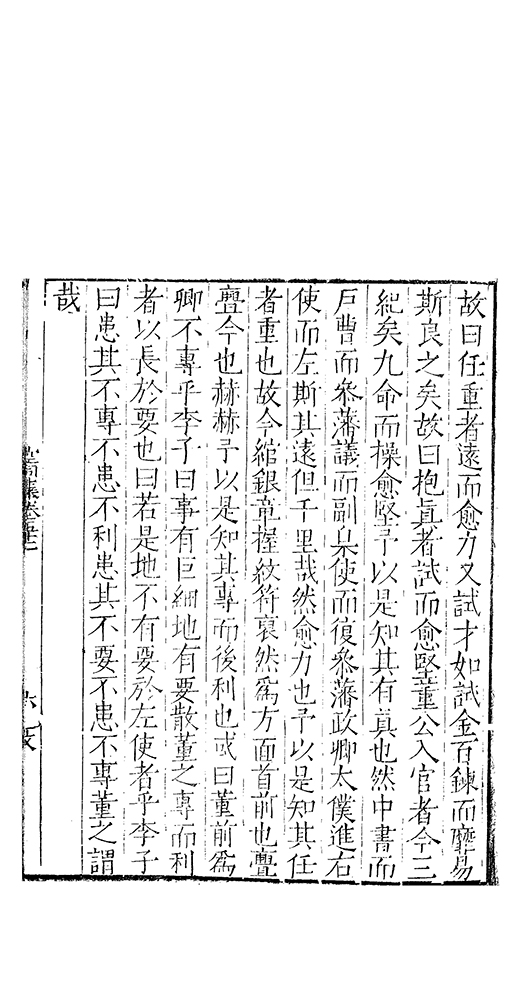 故曰任重者遠而愈力又試才如試金百鍊而靡易
斯良之矣故曰抱眞者試而愈堅董公入官者今三
紀矣九命而操愈堅予以是知其有眞也然中書而
戶曹而叅藩議而副臬使而復叅藩政卿太僕進右
使而左斯其遠但千里哉然愈力也予以是知其任
者重也故今綰銀章握紋符裒然爲方面首前也亹
亹今也赫赫予以是知其專而後利也或曰董前爲
卿不專乎李子曰事有巨細地有要散董之專而利
者以長於要也曰若是地不有要於左使者乎李子
曰患其不專不患不利患其不要不患不專董之謂
哉
空同集卷五十二
六